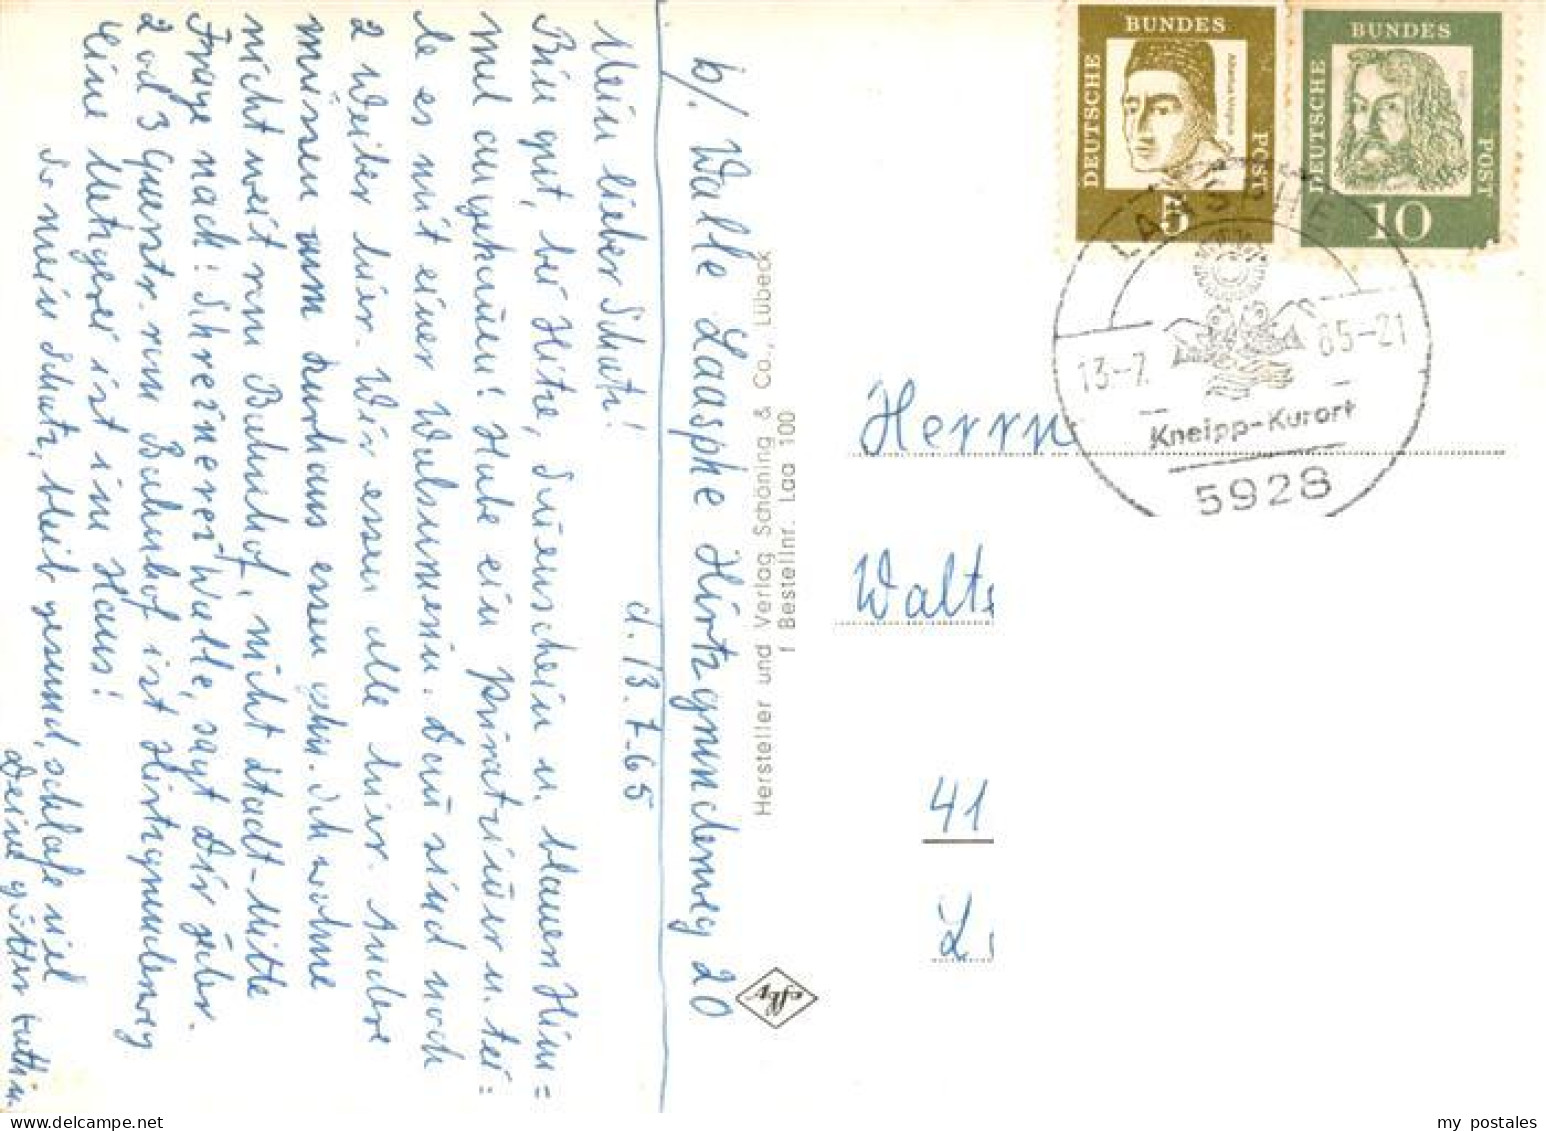 b/. Walle Laasphe Hirtzgrundenweg 20
d. 13.7.65
Mein lieber Schatz!
Bin gut, bei Hitze, Sonnenschein u. blauen Him=
mel angekommen! Habe ein Privatzimmer u. tei=
le es mit einer Dame. Dann sind noch
2 Weiber hier. Wir essen alle hier. Andere
müssen zum Kurhaus essen gehn. Ich wohne
nicht weit vom Bahnhof, nicht Stadt-Mitte
Frage nach: Schreinerei Walle, sagt Dir jeder.
2 od 3 Querstr. vom Bahnhof ist Hirtzgrundenweg
Eine Metzgerei ist im Haus!
So mein Schatz, bleib gesund, schlafe viel
Deine
Hersteller und Verlag Schöning & Co., Lübeck
Bestellnr. Laa 100
DEUTSCHE BUNDES POST
Albertus Magnus
5
DEUTSCHE BUNDES POST
Dürer
10
LAASPHE
13-7. 65-21
Kneipp-Kurort
5928
Herrn
Walt
41
my postales